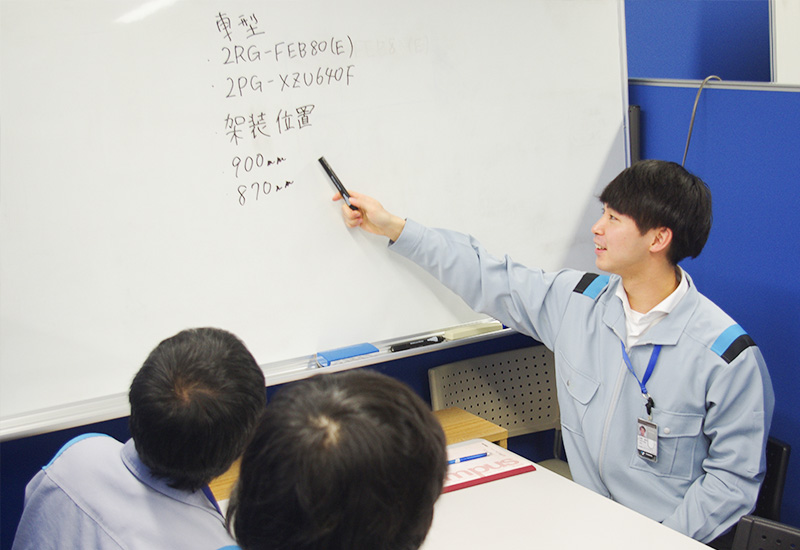 車型
2RG-FEB80(E)
2PG-XZU640F
架装位置
900mm
870mm